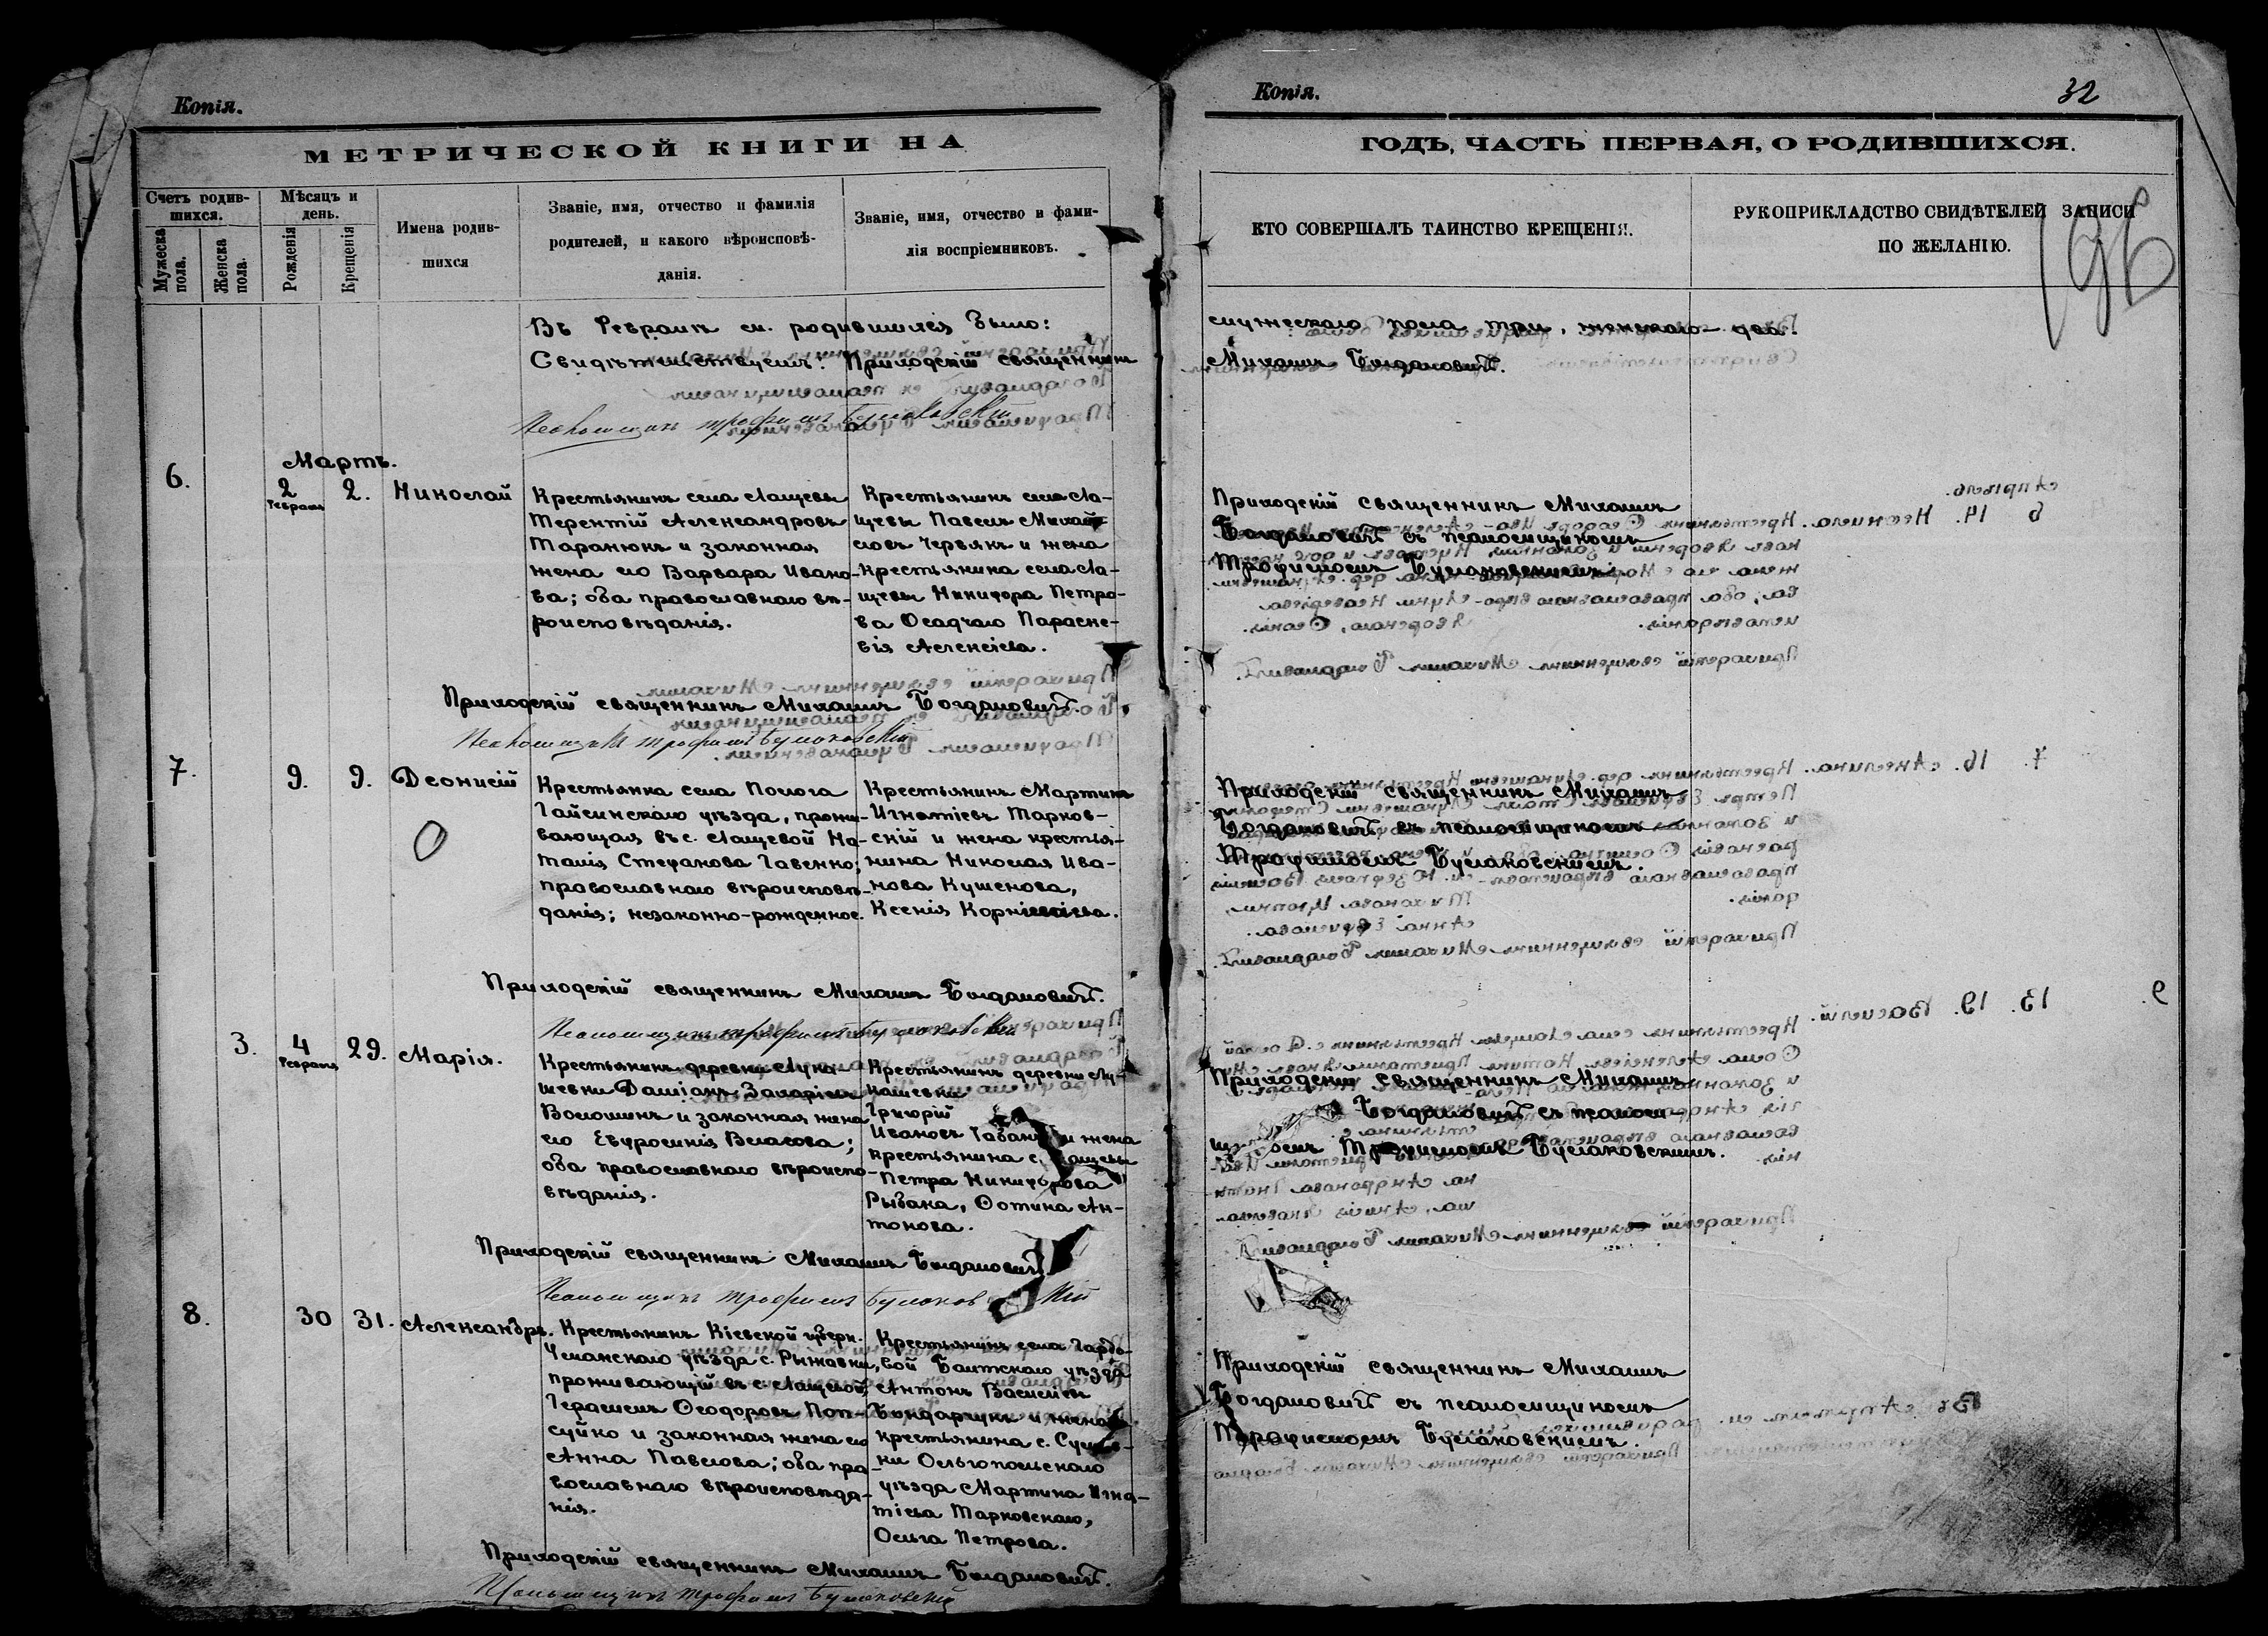 Копія.
МЕТРИЧЕСКОЙ КНИГИ НА
Счетъ родив-
шихся.
Мѣсяцъ и
день.
Мужеска
пола.
Женска
пола.
Рожденія
Крещенія
Имена родив-
шихся
Званіе, имя, отчество и фамилія
родителей, и какого вѣроисповѣ-
данія.
Званіе, имя, отчество и фами-
лія воспріемниковъ.
Въ Февралѣ м. родившихся было:
Свидѣтельствуемъ: Приходскій священникъ
Псаломщикъ Трофимъ
Мартъ.
6.
2
Февраля
2.
Николай
Крестьянинъ села Лащевы
Терентій Александровъ
Таранюкъ и законная
жена его Варвара Ивано-
ва; оба православнаго вѣ-
роисповѣданія.
Крестьянинъ села Ла-
щевы Павелъ Михай-
ловъ Червякъ и жена
крестьянина села Ла-
щевы Никифора Петро-
ва Осадчаго Параске-
вія Алексіева.
Приходскій священникъ Михаилъ Богдановичъ.
Псаломщикъ Трофимъ
7.
9.
9.
Деонисій
Крестьянка села Полога
Гайсинскаго уѣзда, прожи-
вающая въ с. Лащевой На-
талія Стефанова Гавенко;
православнаго вѣроисповѣ-
данія; незаконно-рожденное.
Крестьянинъ Мартинъ
Игнатіевъ Марков-
скій и жена крестья-
нина Николая Ива-
нова Кушенова,
Ксенія Корніліева.
Приходскій священникъ Михаилъ Богдановичъ.
Псаломщикъ Трофимъ
3.
4
Февраля
29.
Марія.
Крестьянинъ деревни Лука-
шевки Даміанъ Захаріевъ
Волошинъ и законная жена
его Евфросинія Власова;
оба православнаго вѣроиспо-
вѣданія.
Крестьянинъ деревни Лу-
кашевки
Григорій
Ивановъ и жена
крестьянина с. Лащевы
Петра Никифорова
Рыбака, Фотина Ан-
тонова.
Приходскій священникъ Михаилъ Богдановичъ.
Псаломщикъ Трофимъ
8.
30
31.
Александръ.
Крестьянинъ Кіевской губерн.
Уманскаго уѣзда с. Рыжавки,
проживающій въ с. Лащевой,
Герасимъ Феодоровъ Поп-
суйко и законная жена его
Анна Павлова; оба пра-
вославнаго вѣроисповѣда-
нія.
Крестьянинъ села Гардо-
вой Балтскаго уѣзда
Антонъ Василіевъ
Бондарчукъ и жена
крестьянина с.
Ольгопольскаго
уѣзда Мартина Игна-
тіева Марковскаго,
Ольга Петрова.
Приходскій священникъ Михаилъ Богдановичъ.
Псаломщикъ Трофимъ
Копія.
32
ГОДЪ, ЧАСТЬ ПЕРВАЯ, О РОДИВШИХСЯ.
КТО СОВЕРШАЛЪ ТАИНСТВО КРЕЩЕНІЯ.
РУКОПРИКЛАДСТВО СВИДѢТЕЛЕЙ ЗАПИСИ
ПО ЖЕЛАНІЮ.
мужескаго пола три, женскаго два.
Михаилъ Богдановичъ.
Приходскій священникъ Михаилъ
Богдановичъ съ псаломщикомъ
Трофимомъ
Приходскій священникъ Михаилъ
Богдановичъ съ псаломщикомъ
Трофимомъ
Приходскій священникъ Михаилъ
Богдановичъ съ псалом-
щикомъ Трофимомъ
Приходскій священникъ Михаилъ
Богдановичъ съ псаломщикомъ
Трофимомъ